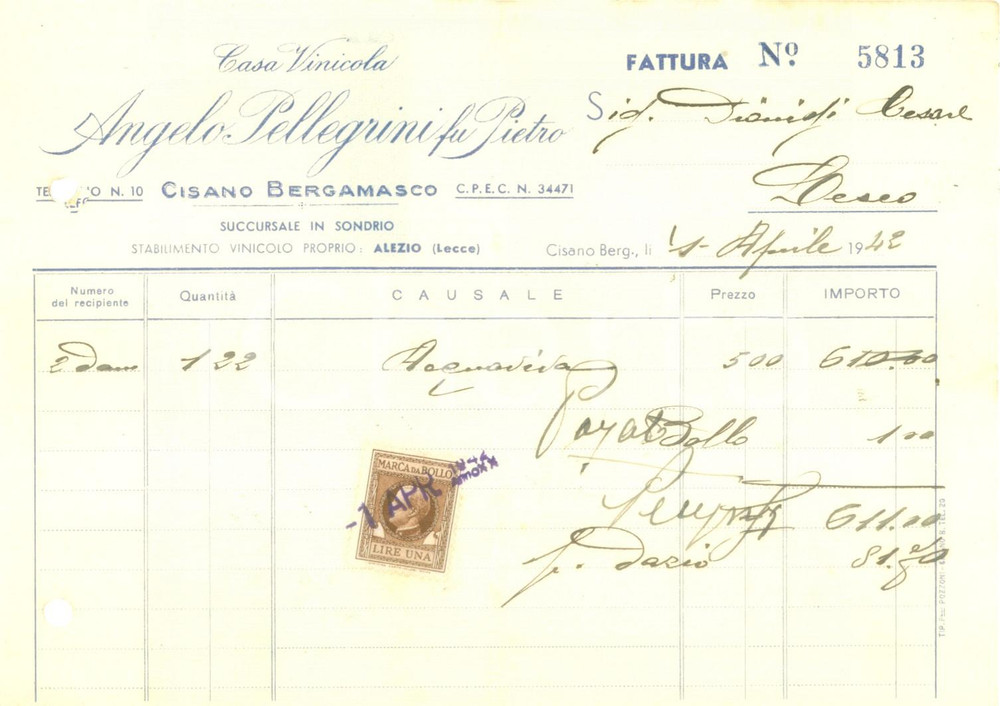 Casa Vinicola
Angelo Pellegrini fu Pietro
N. 10 CISANO BERGAMASCO C.P.E.C. N. 34471
SUCCURSALE IN SONDRIO
STABILIMENTO VINICOLO PROPRIO: ALEZIO (Lecce)
FATTURA Nº 5813
Sig. Dionigi Cesare
Cisano Berg., li 1- Aprile 1942
Numero del recipiente Quantità CAUSALE Prezzo IMPORTO
2 Dam 122 Acquavite 500 610.00
Bollo 1.00
611.00
p. Dazio 81.
MARCA DA BOLLO
-1 APR 1942
LIRE UNA